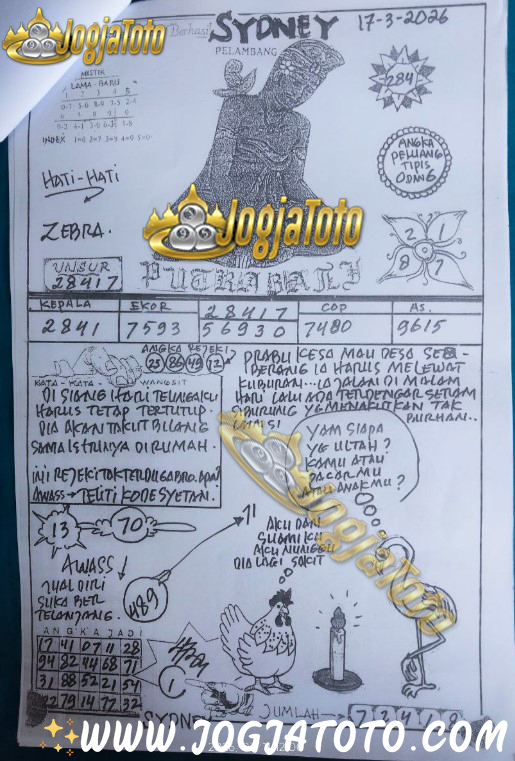 JogjaToto
Berhasil
SYDNEY
17-3-2026
PELAMBANG
MISTIK
LAMA - BARU
INDEX
284
ANGKA
PELUANG
TIPIS
HATI-HATI
ZEBRA.
JogjaToto
2 1
8 7
UNSUR
28417
PUTRA BALI
KEPALA EKOR 28417 COP AS.
2841 7593 56930 7480 9615
ANGKA REJEKI
25 86 49 12
KATA - KATA - WANGSIT
DI SIANG HARI TELINGAKU
HARUS TETAP TERTUTUP.
DIA AKAN TAKUT BILANG
SAMA ISTRINYA DI RUMAH.
INI REJEKI TOK TERDUGA BRO.
AWASS → TELITI KODE SYETAN.
PRABU KESA MAU DESA SE
PERANG IA HARUS MELEWAT
KUBURAN... IA JALAN DI MALAM
HARI LALU ADA TERDENGAR SERAM
BURUNG YG MENAKUTKAN TAK
YAM SIAPA
YG ULTAH?
KAMU ATAU
PACARMU
ATAU ANAKMU?
JogjaToto
13
70
11
AKU DAN
SUAMIKU
AKU NUNGGU
DIA LAGI SAKIT
AWASS
JUAL DIRI
SUKA BER
TELANJANG.
489
ANGKA JADI
17 41 07 11 28
94 82 44 68 71
31 88 52 21 54
22 79 14 77 32
1
SYDNEY
JUMLAH → 7 2 4 1 8
WWW.JOGJATOTO.COM